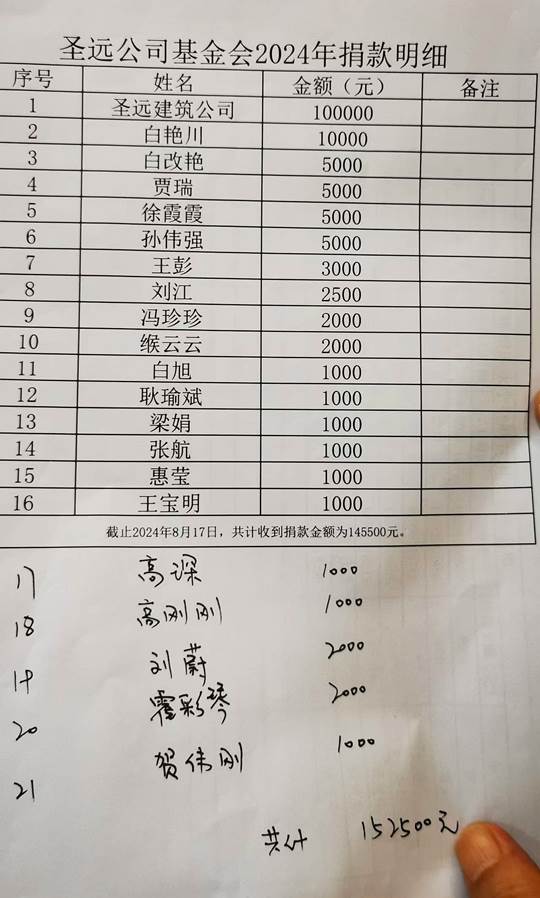 圣远公司基金会2024年捐款明细
序号 姓名 金额（元） 备注
1 圣远建筑公司 100000
2 白艳川 10000
3 白改艳 5000
4 贾瑞 5000
5 徐霞霞 5000
6 孙伟强 5000
7 王彭 3000
8 刘江 2500
9 冯珍珍 2000
10 缑云云 2000
11 白旭 1000
12 耿瑜斌 1000
13 梁娟 1000
14 张航 1000
15 惠莹 1000
16 王宝明 1000
截止2024年8月17日，共计收到捐款金额为145500元。
17 高琛 1000
18 高刚刚 1000
19 刘蔚 2000
20 霍彩琴 2000
21 贺伟刚 1000
共计 152500元